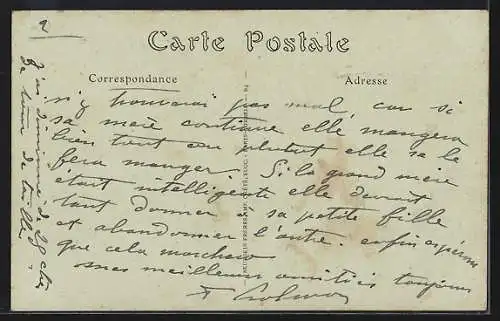 2
Carte Postale
Correspondance
Adresse
n'y trouverai pas mal car si
sa mère continue elle mangera
bien tout ou plutôt elle se le
fera manger. Si la grand mère
était intelligente elle devrait
tant donner à sa petite fille
et abandonner l'autre. enfin espérons
que cela marchera
mes meilleures amitiés toujours
J'ai diminué de
de tour de taille